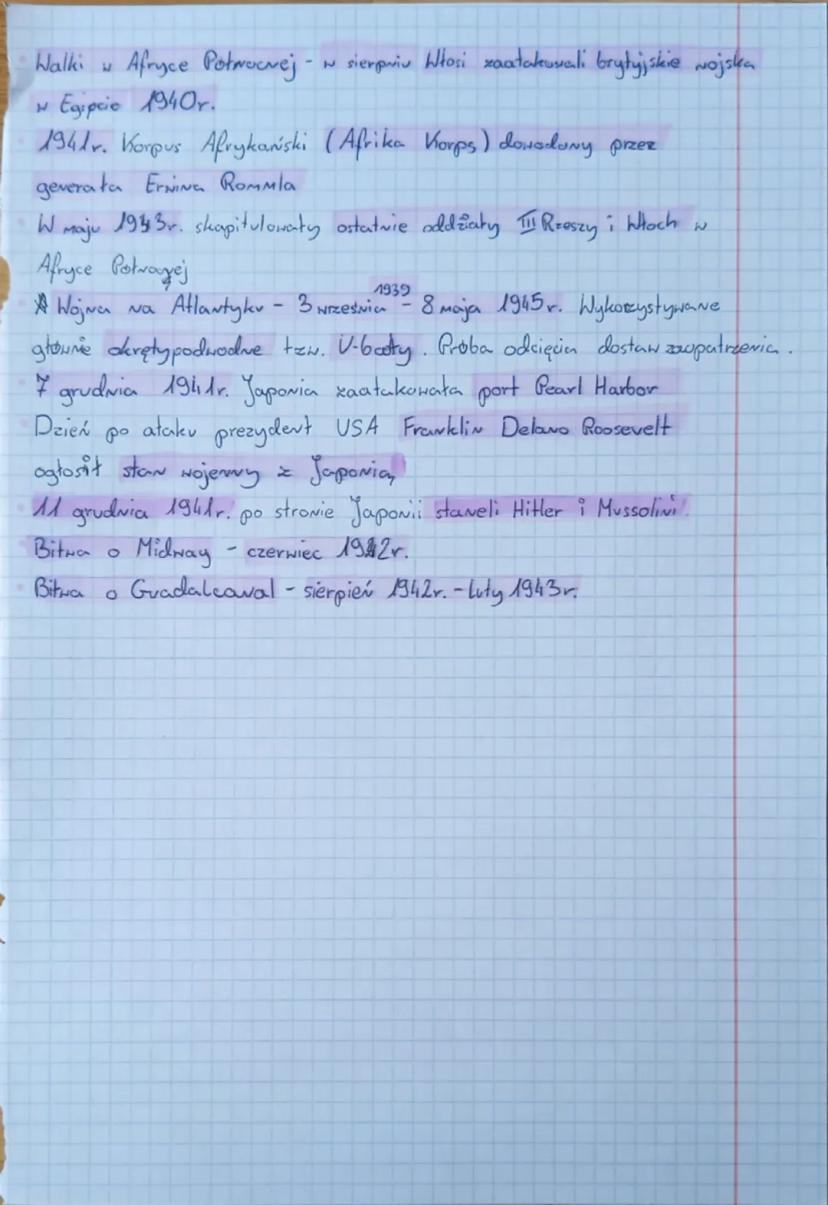 Walki w Afryce Północnej - w sierpniu Włosi zaatakowali brytyjskie wojska
w Egipcie 1940r.
1941r. Korpus Afrykański (Afrika Korps) dowodony przez
generała Erwina Rommla
W maju 1943r. skapitulowały ostatnie oddziały III Rzeszy i Włoch w
Afryce Północnej
Wojna na Atlantyku - 3 września 1939 - 8 maja 1945r. Wykorzystywane
głównie okręty podwodne tzw. U-booty. Próba odcięcia dostaw zaopatrzenia.
7 grudnia 1941r. Japonia zaatakowała port Pearl Harbor
Dzień po ataku prezydent USA Franklin Delano Roosevelt
ogłosił stan wojenny z Japonią
11 grudnia 1941r. po stronie Japonii staneli Hitler i Mussolini.
Bitwa o Midway - czerwiec 1942r.
Bitwa o Guadalcanal - sierpień 1942r. - luty 1943r.